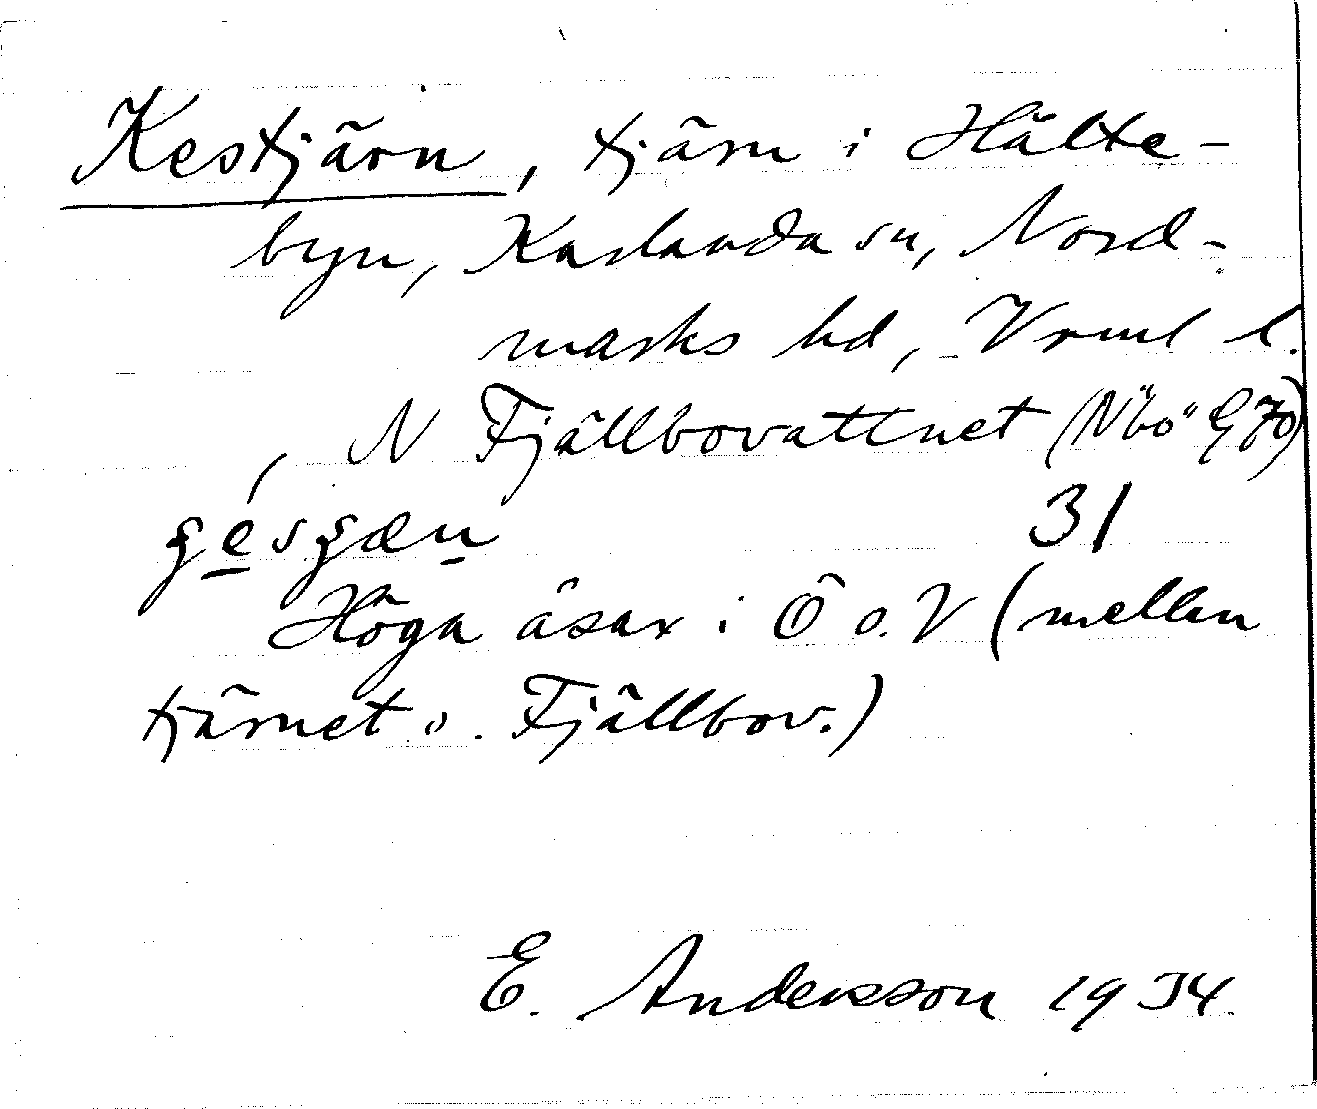 Kestjärn, tjärn i Hälte-
byn, Karlanda sn, Nord-
marks hd, Vrml l.
, N Fjällbovattnet (N"bo" G 70)
gésgæn 31
Höga åsar i Ö o. V (mellan
tjärnet o. Fjällbov.)
E. Andersson 1934.